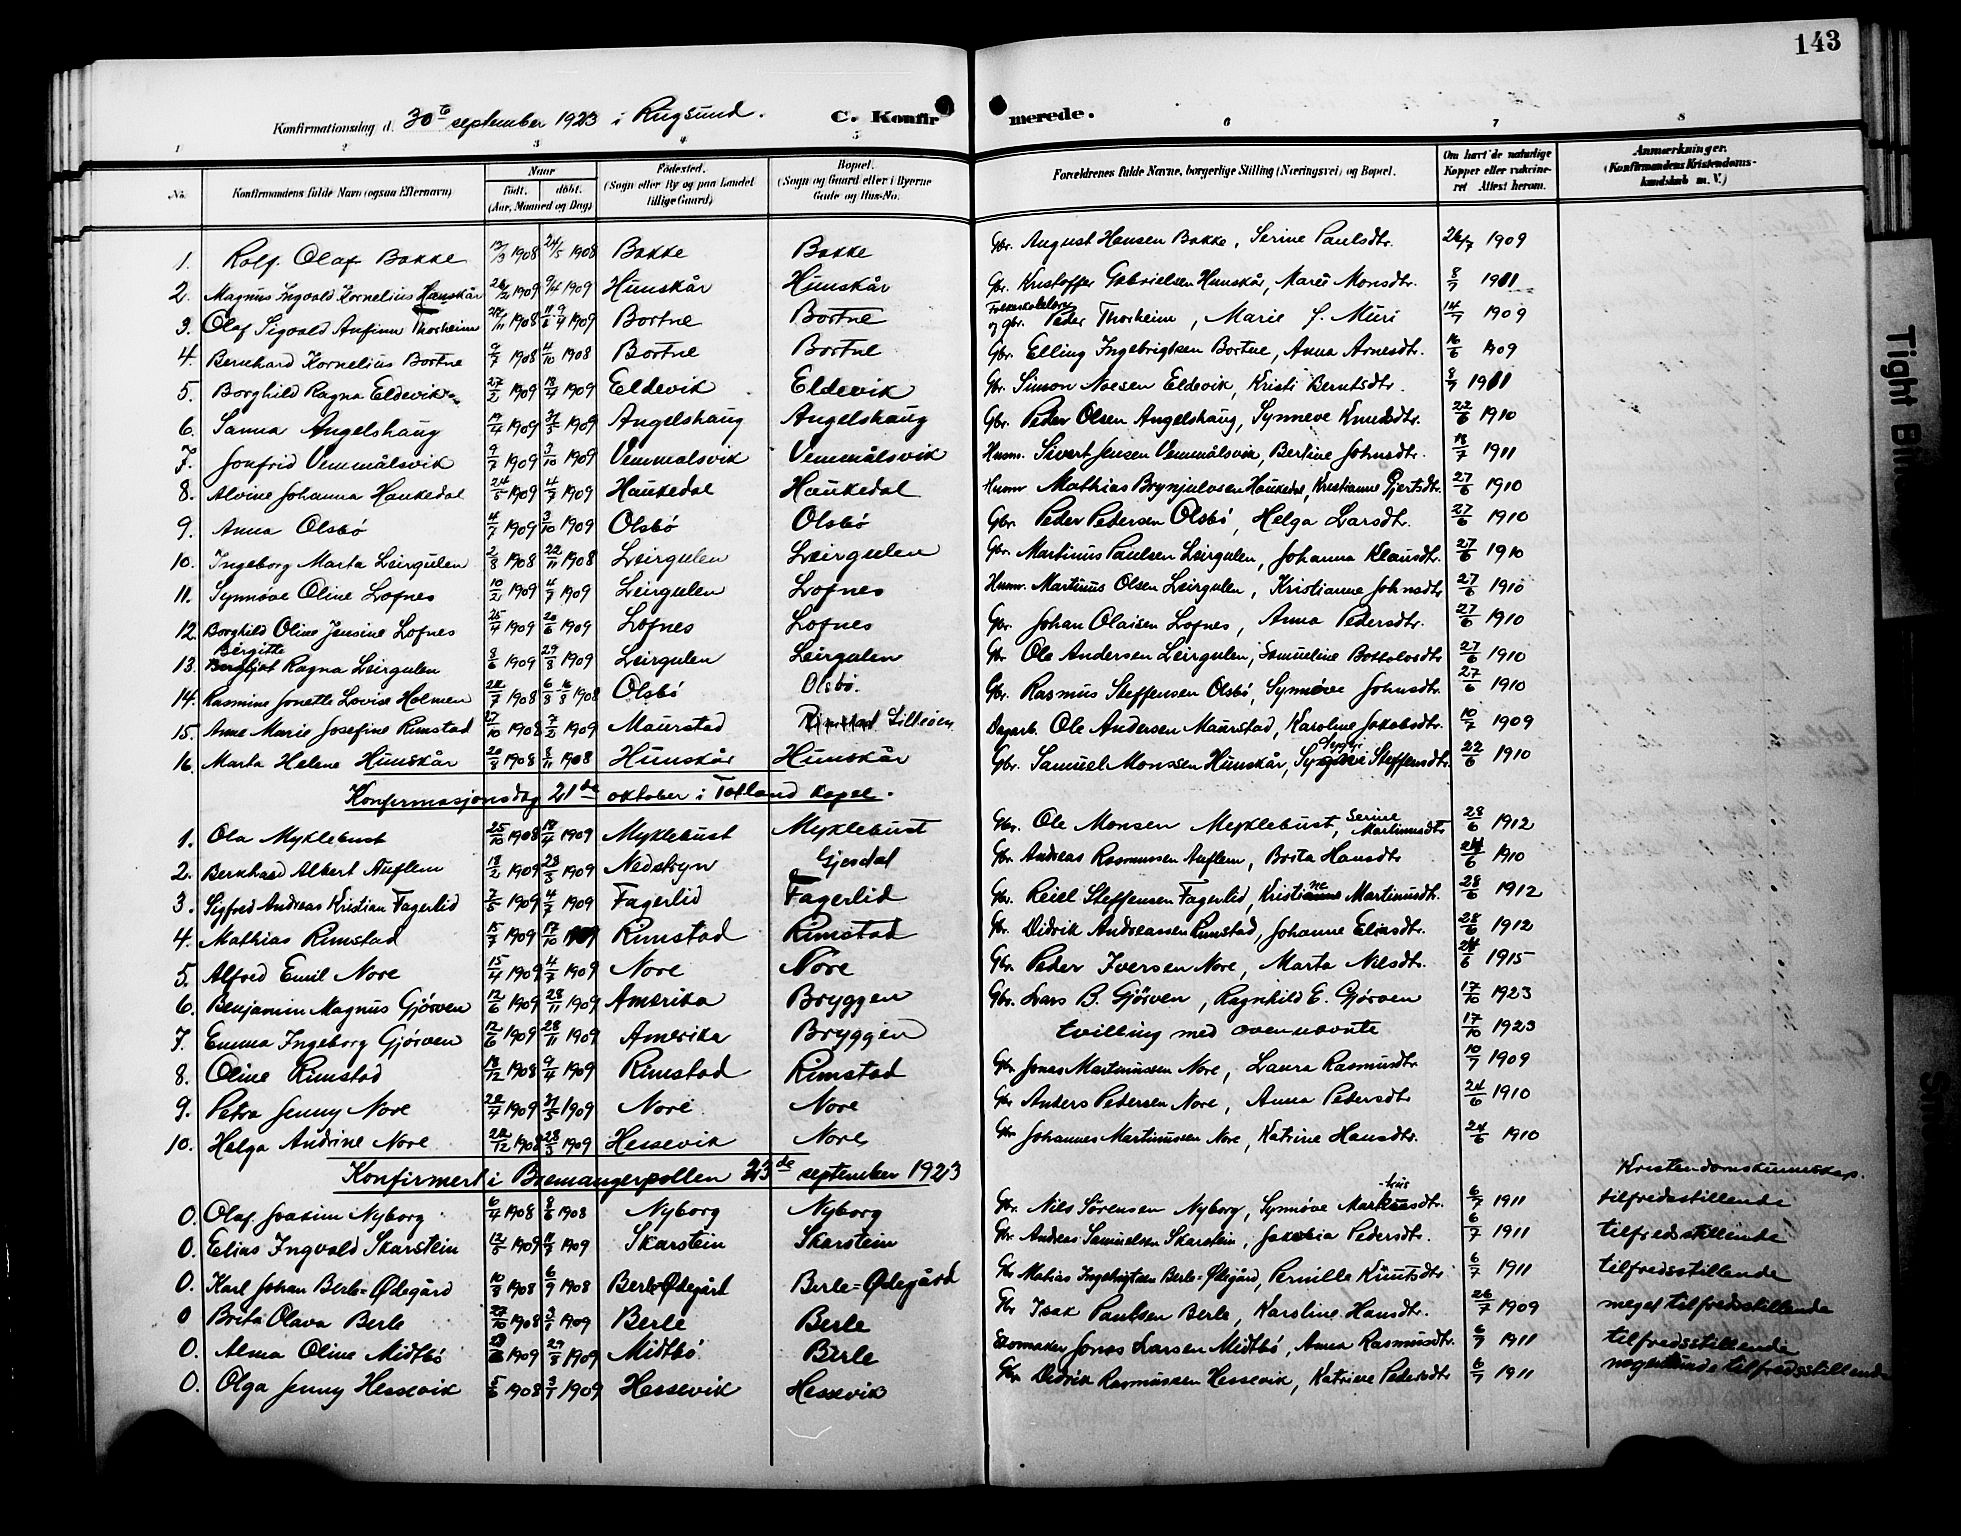 143
Konfirmationsdag d. 30te september 1923 i Rugsund. C. Konfirmerede.
1 2 3 4 5 6 7 8
No. Konfirmandens fulde Navn (ogsaa Efternavn) Naar født, døbt. (Aar, Maaned og Dag) Fødested. (Sogn eller By og paa Landet tillige Gaard) Bopæl. (Sogn og Gaard eller i Byerne Gade og Hus-No. Forældrenes fulde Navne, borgerlige Stilling (Næringsvei) og Bopæl. Om havt de naturlige Kopper eller vakcineret Attest herom. Anmærkninger. (Konfirmandens Kristendomskundskab m. V.)
1. Rolf Olaf Bakke 1908 24/5 1908 Bakke Bakke Gbr. August Hansen Bakke, Serine Paulsdtr. 26/7 1909
2. Magnus Ingvald Kornelius Hunskår 1909 9/4 1909 Hunskår Hunskår Gbr. Kristoffer Gabrielsen Hunskår, Marie Monsdtr. 8/7 1911
3. Olaf Sigvald Anfinn Thorheim 1908 1909 Bortne Bortne og gbr. Peder Thorheim, Marie f. Muri 14/7 1909
4. Bernhard Kornelius Bortne 9/7 1908 4/10 1908 Bortne Bortne Gbr. Elling Ingebrigtsen Bortne, Anna Arnesdtr. 16/6 1909
5. Borghild Ragna Eldevik 27/2 1909 18/4 1909 Eldevik Eldevik Gbr. Simon Noesen Eldevik, Kristi Berntsdtr. 8/7 1911
6. Sanna Angelshaug 1909 31/5 1909 Angelshaug Angelshaug Gbr. Peder Olsen Angelshaug, Synneve Knudsdtr. 22/6 1910
7. Jonfrid Vemmålsvik 9/7 1909 3/10 1909 Vemmalsvik Vemmålsvik Husm. Sivert Jensen Vemmålsvik, Bertine Johnsdtr. 18/7 1911
8. Alvine Johanna Haukedal 24/5 1909 4/7 1909 Haukedal Haukedal Husm Mathias Brynjulvsen Haukedal, Kristianne Gjertsdtr. 27/6 1910
9. Anna Olsbø 4/7 1909 3/10 1909 Olsbø Olsbø Gbr. Peder Pedersen Olsbø, Helga Larsdtr. 27/6 1910
10. Ingeborg Marta Leirgulen 2/8 1908 22/11 1908 Leirgulen Leirgulen Gbr. Martinus Paulsen Leirgulen, Johanna Klausdtr. 27/6 1910
11. Synnøve Oline Lofnes 10/2 1909 4/7 1909 Leirgulen Lofnes Husm. Martinus Olsen Leirgulen, Kristianne Johnsdtr. 27/6 1910
12. Borghild Oline Jensine Lofnes 25/4 1909 20/6 1909 Lofnes Lofnes Gbr. Johan Olaisen Lofnes, Anna Pedersdtr. 27/6 1910
Birgitte
13. Ragna Leirgulen 8/6 1909 29/8 1909 Leirgulen Leirgulen Gbr Ole Andersen Leirgulen, Samueline Bottolvsdtr 27/6 1910
14. Rasmine Jonette Lovise Holmen 1908 1908 Olsbø Olsbø. Gbr. Rasmus Steffensen Olsbø, Synnøve Johnsdtr. 27/6 1910
15. Anne Marie Josefine Rimstad 27/10 1908 7/2 1909 Maurstad Rimstad Lilleøen Dagarb. Ole Andersen Maurstad, Karoline Jakobsdtr. 10/7 1909
16. Marta Helene Hunskår 20/8 1908 8/11 1908 Hunskår Hunskår Gbr. Samuel Monssen Hunskår, Steffensdtr. 22/6 1910
Konfirmasjonsdag 21de oktober i Totland kapel.
1. Ola Myklebust 25/10 1908 1909 Myklebust Myklebust Gbr. Ole Monsen Myklebust, Serine Martinusdtr 28/6 1912
2. Bernhard Albert Auflem 18/2 1909 28/3 1909 Nedstryn Gjesdal Gbr. Andreas Rasmussen Auflem, Brita Hansdtr 24/6 1910
3. Sigfred Andreas Kristian Fagerlid 7/5 1909 4/7 1909 Fagerlid Fagerlid Gbr. Reiel Steffensen Fagerlid, Kristiane Martinusdtr. 28/6 1912
4. Mathias Rimstad 15/7 1909 17/10 1909 Rimstad Rimstad Gbr. Didrik Andreassen Rimstad, Johanne Eliasdtr. 28/6 1912
5. Alfred Emil Nore 15/4 1909 4/7 1909 Nore Nore Gbr. Peder Iversen Nore, Marta Nilsdtr. 24/6 1915
6. Benjamin Magnus Gjørven 12/6 1909 28/11 1909 Amerika Bryggen Gbr. Lars B. Gjørven, Ragnhild E. Gjørven 17/10 1923
7. Emma Ingeborg Gjørven 12/6 1909 28/11 1909 Amerika Bryggen tvilling med ovennævnte 17/10 1923
8. Oline Rimstad 1908 9/4 1909 Rimstad Rimstad Gbr Jonas Martinussen Nore, Laura Rasmusdtr 10/7 1909
9. Petra Jenny Nore 1909 31/5 1909 Nore Nore Gbr Anders Pedersen Nore, Anna Pedersdtr 24/6 1910
10. Helga Andrine Nore 22/12 1908 28/3 1909 Hessevik Nore Gbr Johannes Martinussen Nore, Katrine Hansdtr. 24/6 1910
Konfirmert i Bremangerpollen 23de september 1923 Kristendomskunnskap.
0. Olaf Joakim Nyborg 6/4 1908 8/6 1908 Nyborg Nyborg Gbr. Nils Sørensen Nyborg, Synnøve Markusdtr. 6/7 1911 tilfredsstillende
0. Elias Ingvald Skarstein 12/5 1909 11/7 1909 Skarstein Skarstein Gbr. Andreas Samuelsen Skarstein, Jakobia Pedersdtr. 6/7 1911 tilfredsstillende
0. Karl Johan Berle-Ødegård 10/8 1908 6/9 1908 Berle Ødegård Berle-Ødegård Gbr Matias Ingebrigtsen Berle-Ødegård, Pernille Knutsdtr 6/7 1911 tilfredsstillende
0 Brita Olava Berle 27/10 1908 3/1 1909 Berle Berle Gbr Isak Paulsen Berle, Karoline Hansdtr. 26/7 1909 meget tilfredsstillende
0. Alma Oline Midtbø 1909 29/8 1909 Midtbø Berle Skomaker Jonas Larsen Midtbø, Anna Rasmusdtr. 6/7 1911 tilfredsstillende
0. Olga Jenny Hessevik 1908 3/1 1909 Hessevik Hessevik Gbr Didrik Rasmussen Hessevik, Katrine Pedersdtr 6/7 1911 nogenlunde tilfredsstillende